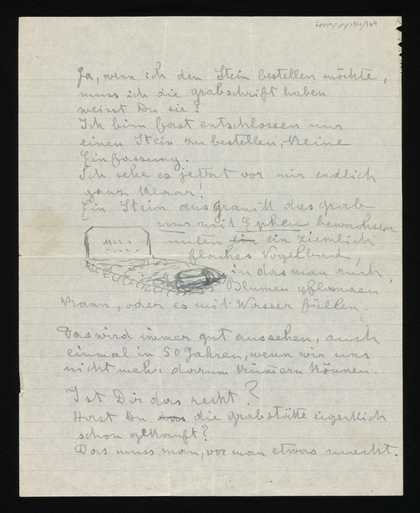 Ja, wenn ich den Stein bestellen möchte,
muss ich die Grabschrift haben
weisst Du sie?
Ich bin fast entschlossen nur
einen Stein zu bestellen, keine
Einfassung.
Ich sehe es jetzt vor mir endlich
ganz klaar!
Ein Stein aus granitt das grab
nur mit Epheu bewachsen
unten ein ziemlich
flaches Vogelbad,
in das man auch
Blumen pflanzen
kann, oder es mit Wasser füllen.
Das wird immer gut aussehen, auch
einmal in 50 Jahren, wenn wir uns
nicht mehr darum kümern können.
Ist Dir das recht?
Hast Du die grabstätte eigentlich
schon gekauft?
Das muss man, vor man etwas macht.